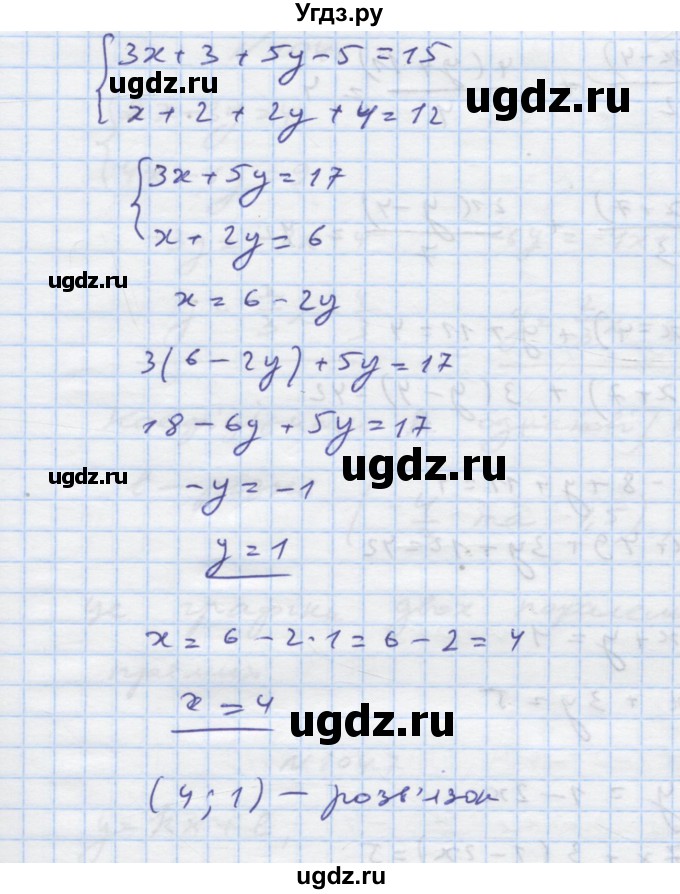 Угдз.ру
3x + 3 + 5y - 5 = 15
ugdz.ru
ugdz.ru
x + 2 + 2y + 4 = 12
3x + 5y = 17
x + 2y = 6
ugdz.ru
x = 6 - 2y
3(6 - 2y) + 5y = 17
18 - 6y + 5y = 17
ugdz.ru
ugdz.ru
-y = -1
y = 1
x = 6 - 2·1 = 6 - 2 = 4
x = 4
ugdz.ru
(4; 1) — розв'язок
ugdz.ru